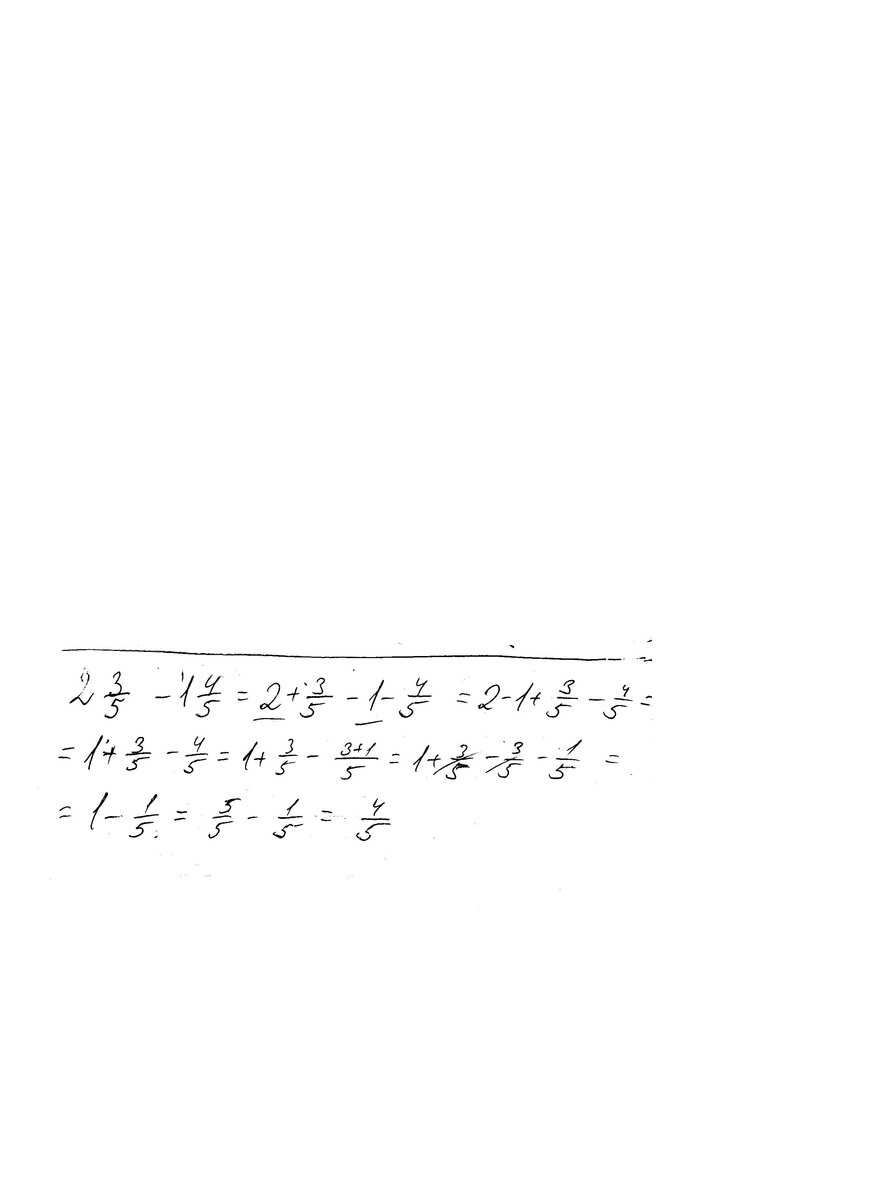 2 3/5 - 1 4/5 = 2 + 3/5 - 1 - 4/5 = 2 - 1 + 3/5 - 4/5 =
= 1 + 3/5 - 4/5 = 1 + 3/5 - (3+1)/5 = 1 + 3/5 - 3/5 - 1/5 =
= 1 - 1/5 = 5/5 - 1/5 = 4/5